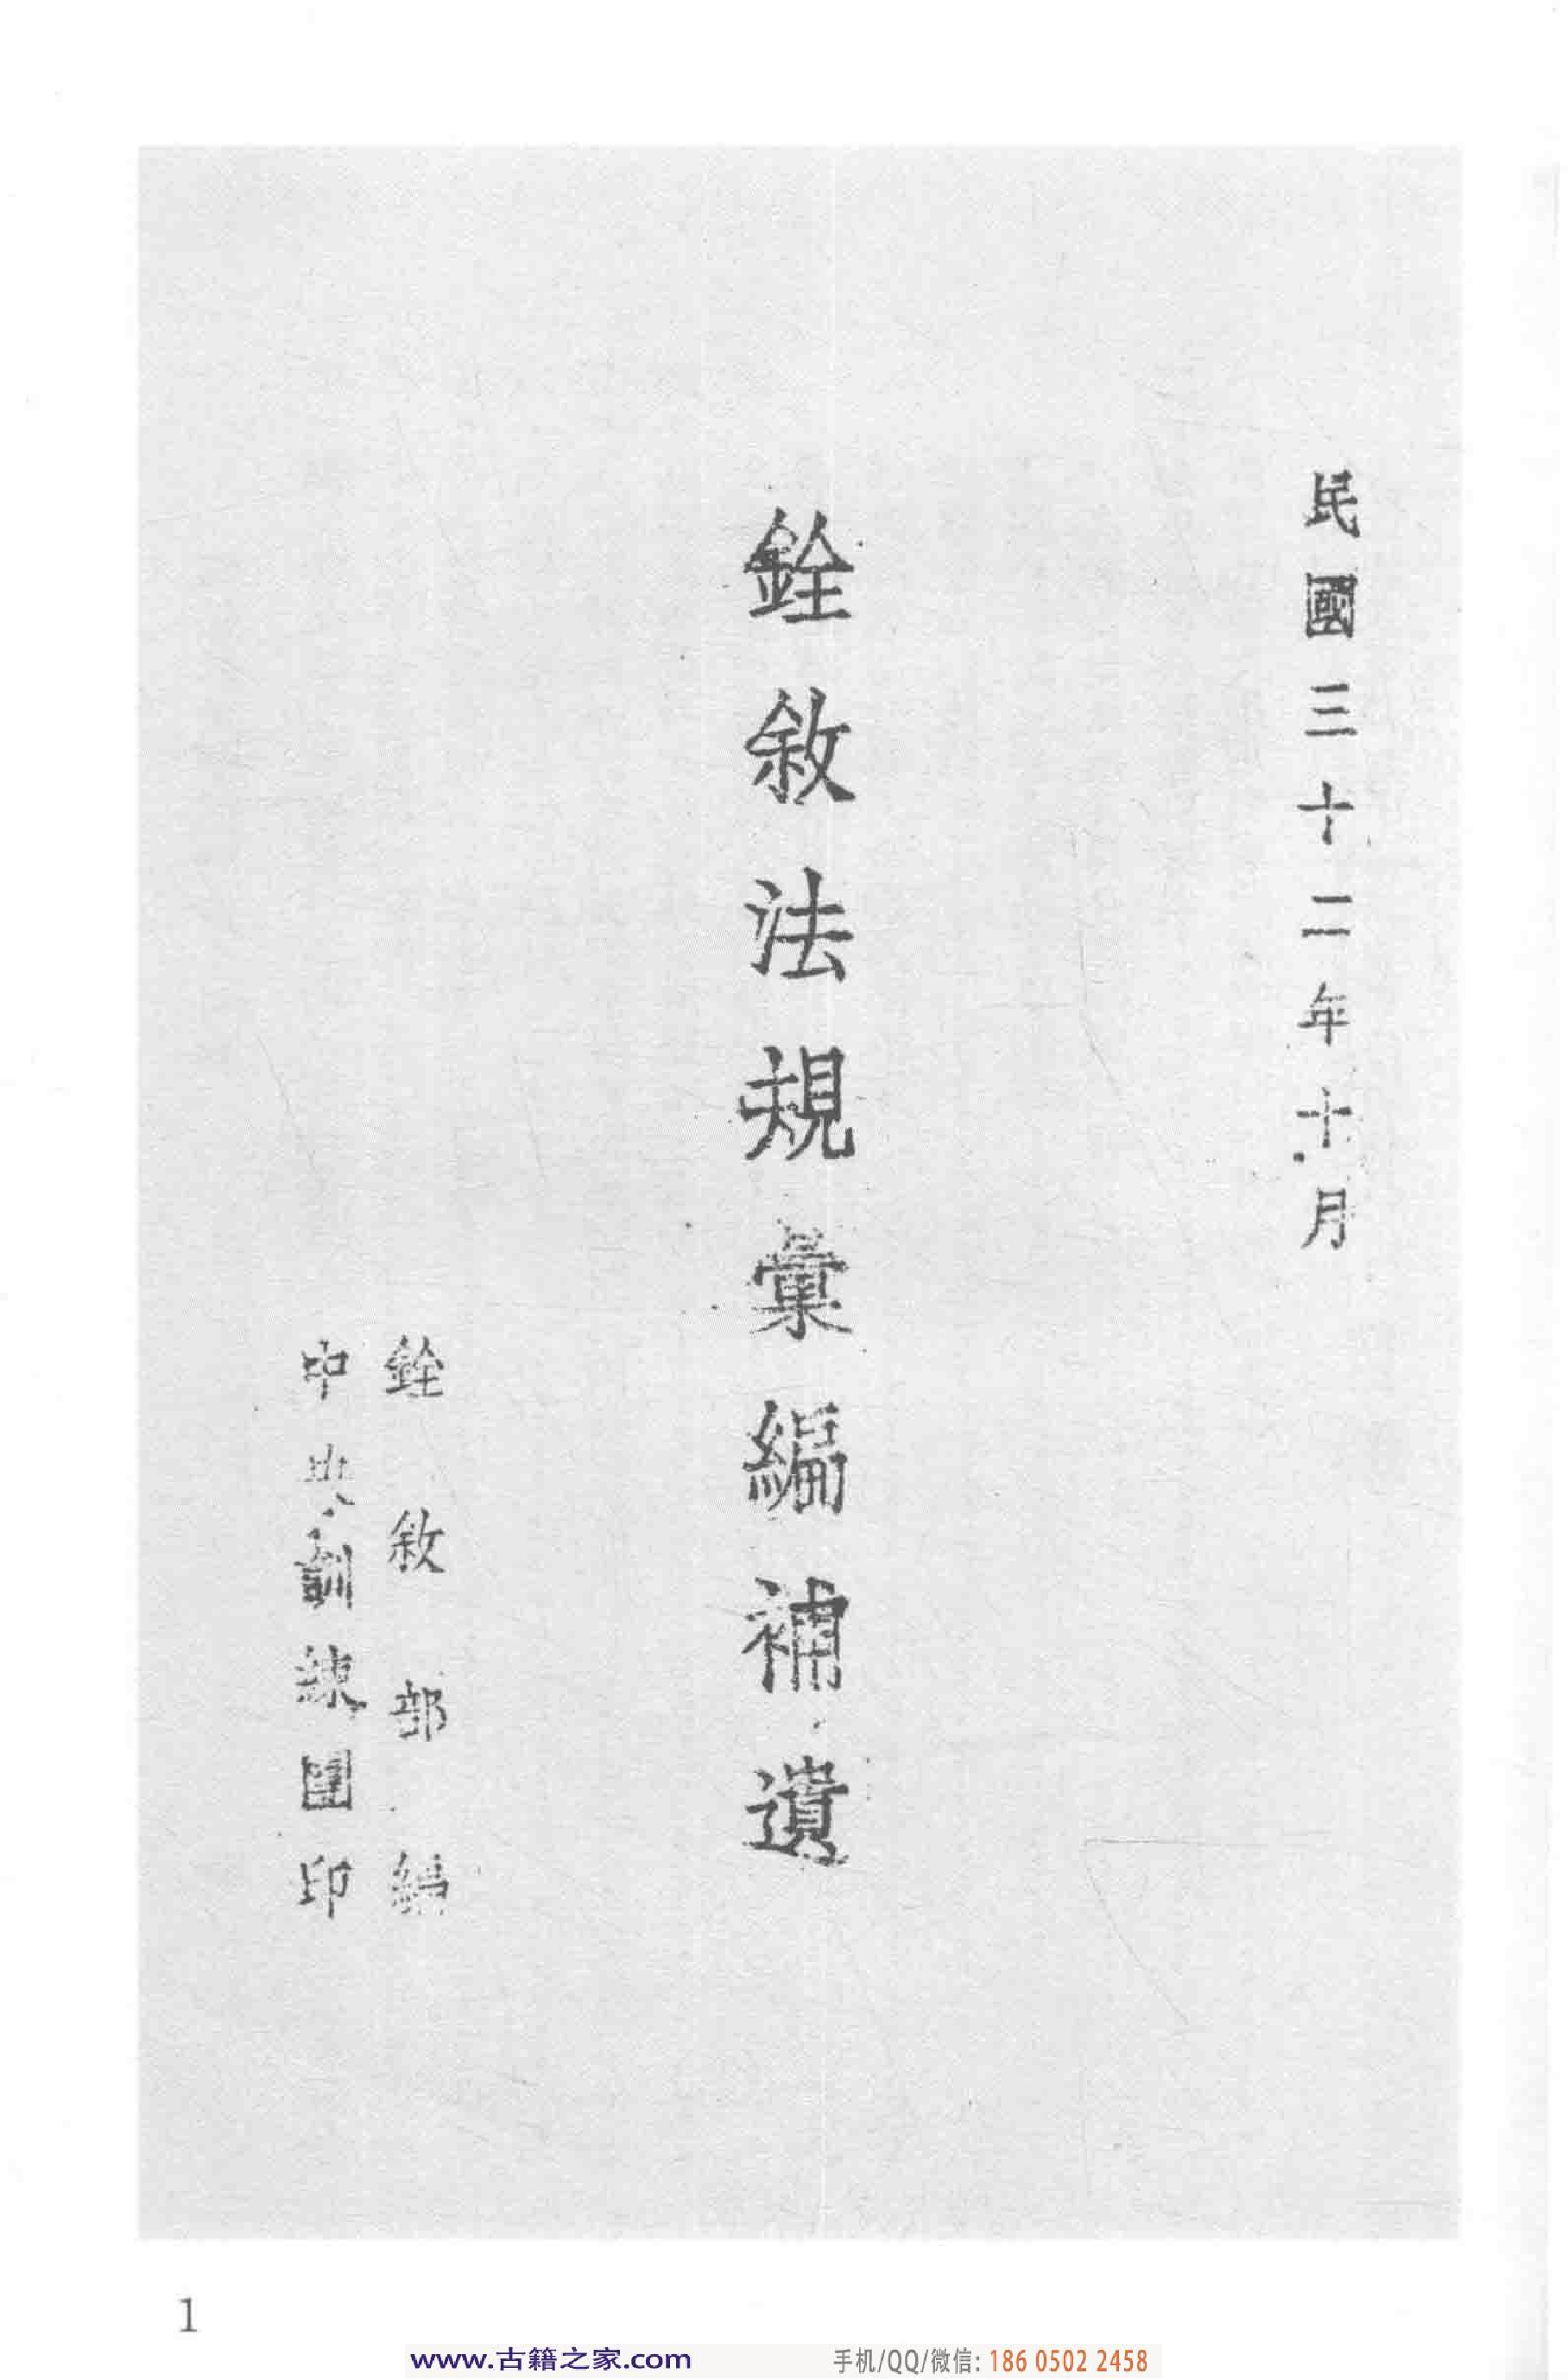 民國三十二年十月
銓敘法規彙編補遺
銓敘部編
中央訓練團印
1
www.古籍之家.com
手机/QQ/微信: 186 0502 2458